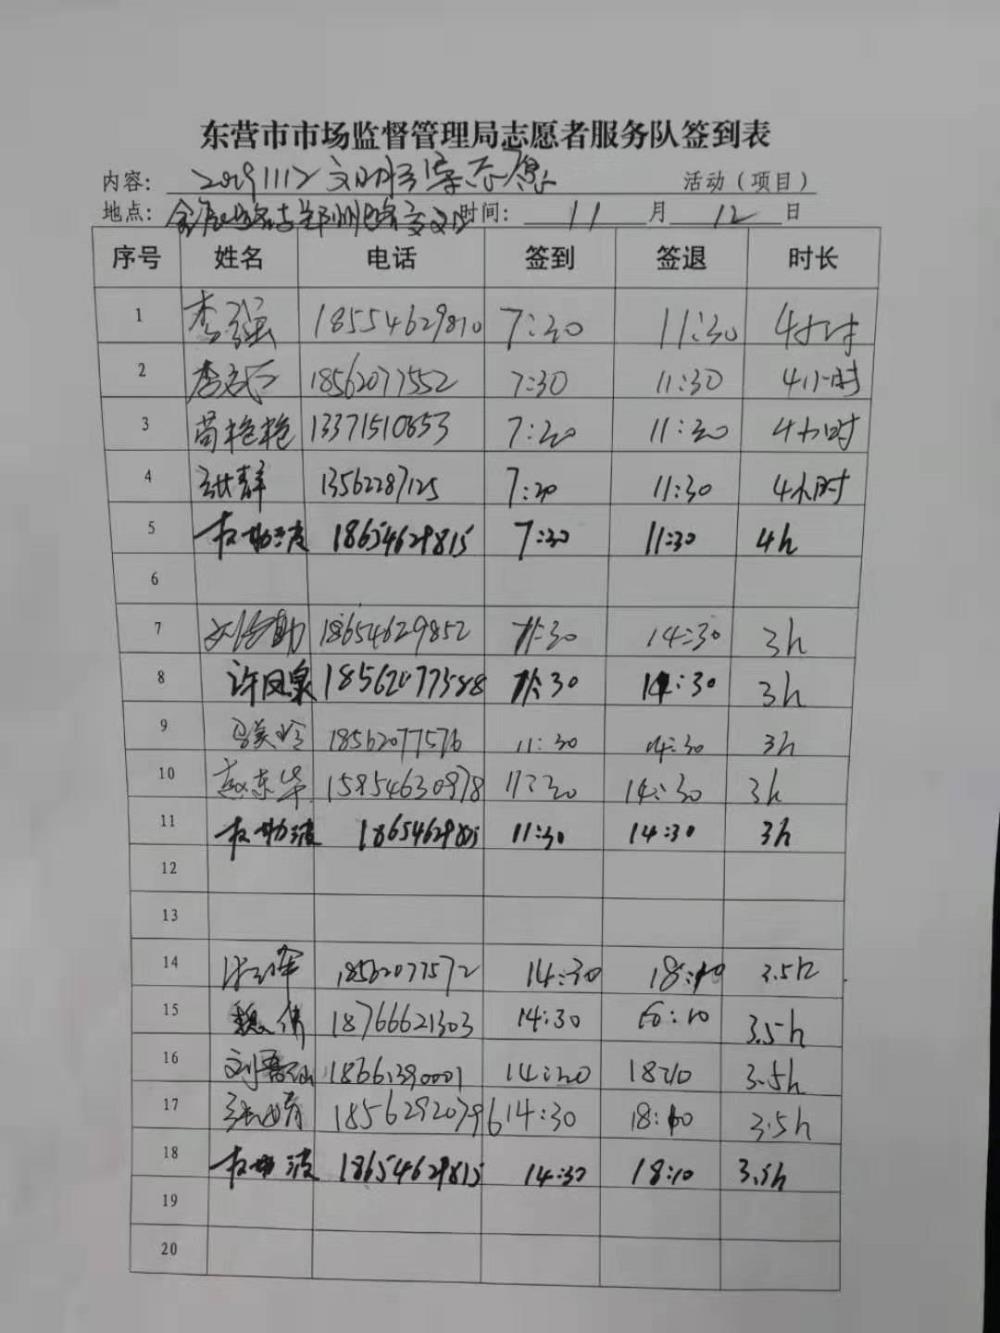 东营市市场监督管理局志愿者服务队签到表
内容: 20191112文明引导志愿 活动（项目）
地点: 路与郑州路交叉口 时间: 11 月 12 日
序号 姓名 电话 签到 签退 时长
1 李强 18554629810 7:30 11:30 4小时
2 18562077552 7:30 11:30 4小时
3 苟艳艳 13371510853 7:30 11:30 4小时
4 张群 13562287125 7:30 11:30 4小时
5 18654629815 7:30 11:30 4h
6
7 18654629852 11:30 14:30 3h
8 许凤泉 18562077588 11:30 14:30 3h
9 马美玲 18562077576 11:30 14:30 3h
10 赵东华 15854630978 11:30 14:30 3h
11 11:30 14:30 3h
12
13
14 18562077572 14:30 18:10 3.5h
15 魏伟 18766621303 14:30 18:10 3.5h
16 18661390001 14:30 18:10 3.5h
17 18562920796 14:30 18:10 3.5h
18 18654629815 14:30 18:10 3.5h
19
20